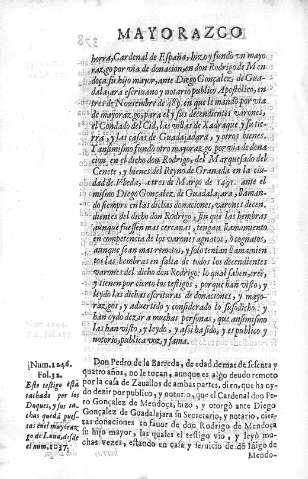 MAYORAZGO
horra, Cardenal de España, hizo y fundò un mayo
razgo por via de donacion, en don Rodrigo de Men
doça su hijo mayor, ante Diego Gonçalez, de Gua
dalajara escriuano y notario publico Apostolico, en
tres de Nouiembre de 489. en que le mandò por via
de mayorazgo, para el y sus decendientes varones,
el Condado del Cid, las villas de Xadraque, y su tie-
rra, y las casas de Guadalajara, y otros bienes.
I ansimismo fundò otro mayorazgo por via de dona
cion, en el dicho don Rodrigo, del Marquesado del
Cenete, y bienes del Reyno de Granada en la ciu
dad de Vbeda, a tres de Março de 1491. ante el mi-
smo Diego Gonçalez, de Guadalajara, llaman-
do siempre en las dichas donaciones, varones decen
dientes del dicho don Rodrigo, sin que las hembras
aunque fuessen mas cercanas, tengan llamamiento
en competencia de los varones agnatos, y cognatos,
aunque sean mas remotos, y solo tenian llamamien
to las hembras en falta de todos los decendientes
varones del dicho don Rodrigo: lo qual saben, creē,
y tienen por cierto los testigos, porque han visto, y
leydo las dichas escrituras de donaciones, y mayo-
razgos, y aduertido y considerado lo susodicho, y
han oydo dezir a muchas personas, que ansimismo
las han visto, y leydo, y assi ha sido, y es publico y
notorio, publica voz, y fama.
[Num. 1246.
Fol. 32.
Este testigo està
tachado por los
Duques, y sus
tachas quedã
en el mayoraz
go de Luna, desde
el núm. 1037.
Don Pedro de la Barreda, de edad de mas de sesenta y
quatro años, no le tocan, aunque es algo deudo remoto
por la casa de Zauallos de ambas partes, dixo, que ha oy-
do dezir por publico, y notorio, que el Cardenal don Pe-
dro Gonçalez de Mendoça, hizo, y otorgò ante Diego
Gonçalez de Guadalajara su Secretario, y notario, cier-
tas donaciones en fauor de don Rodrigo de Mendoça
su hijo mayor, las quales el testigo vio, y leyò mu-
chas vezes, estando en casa y seruicio de dō Iñigo de
Mendo-